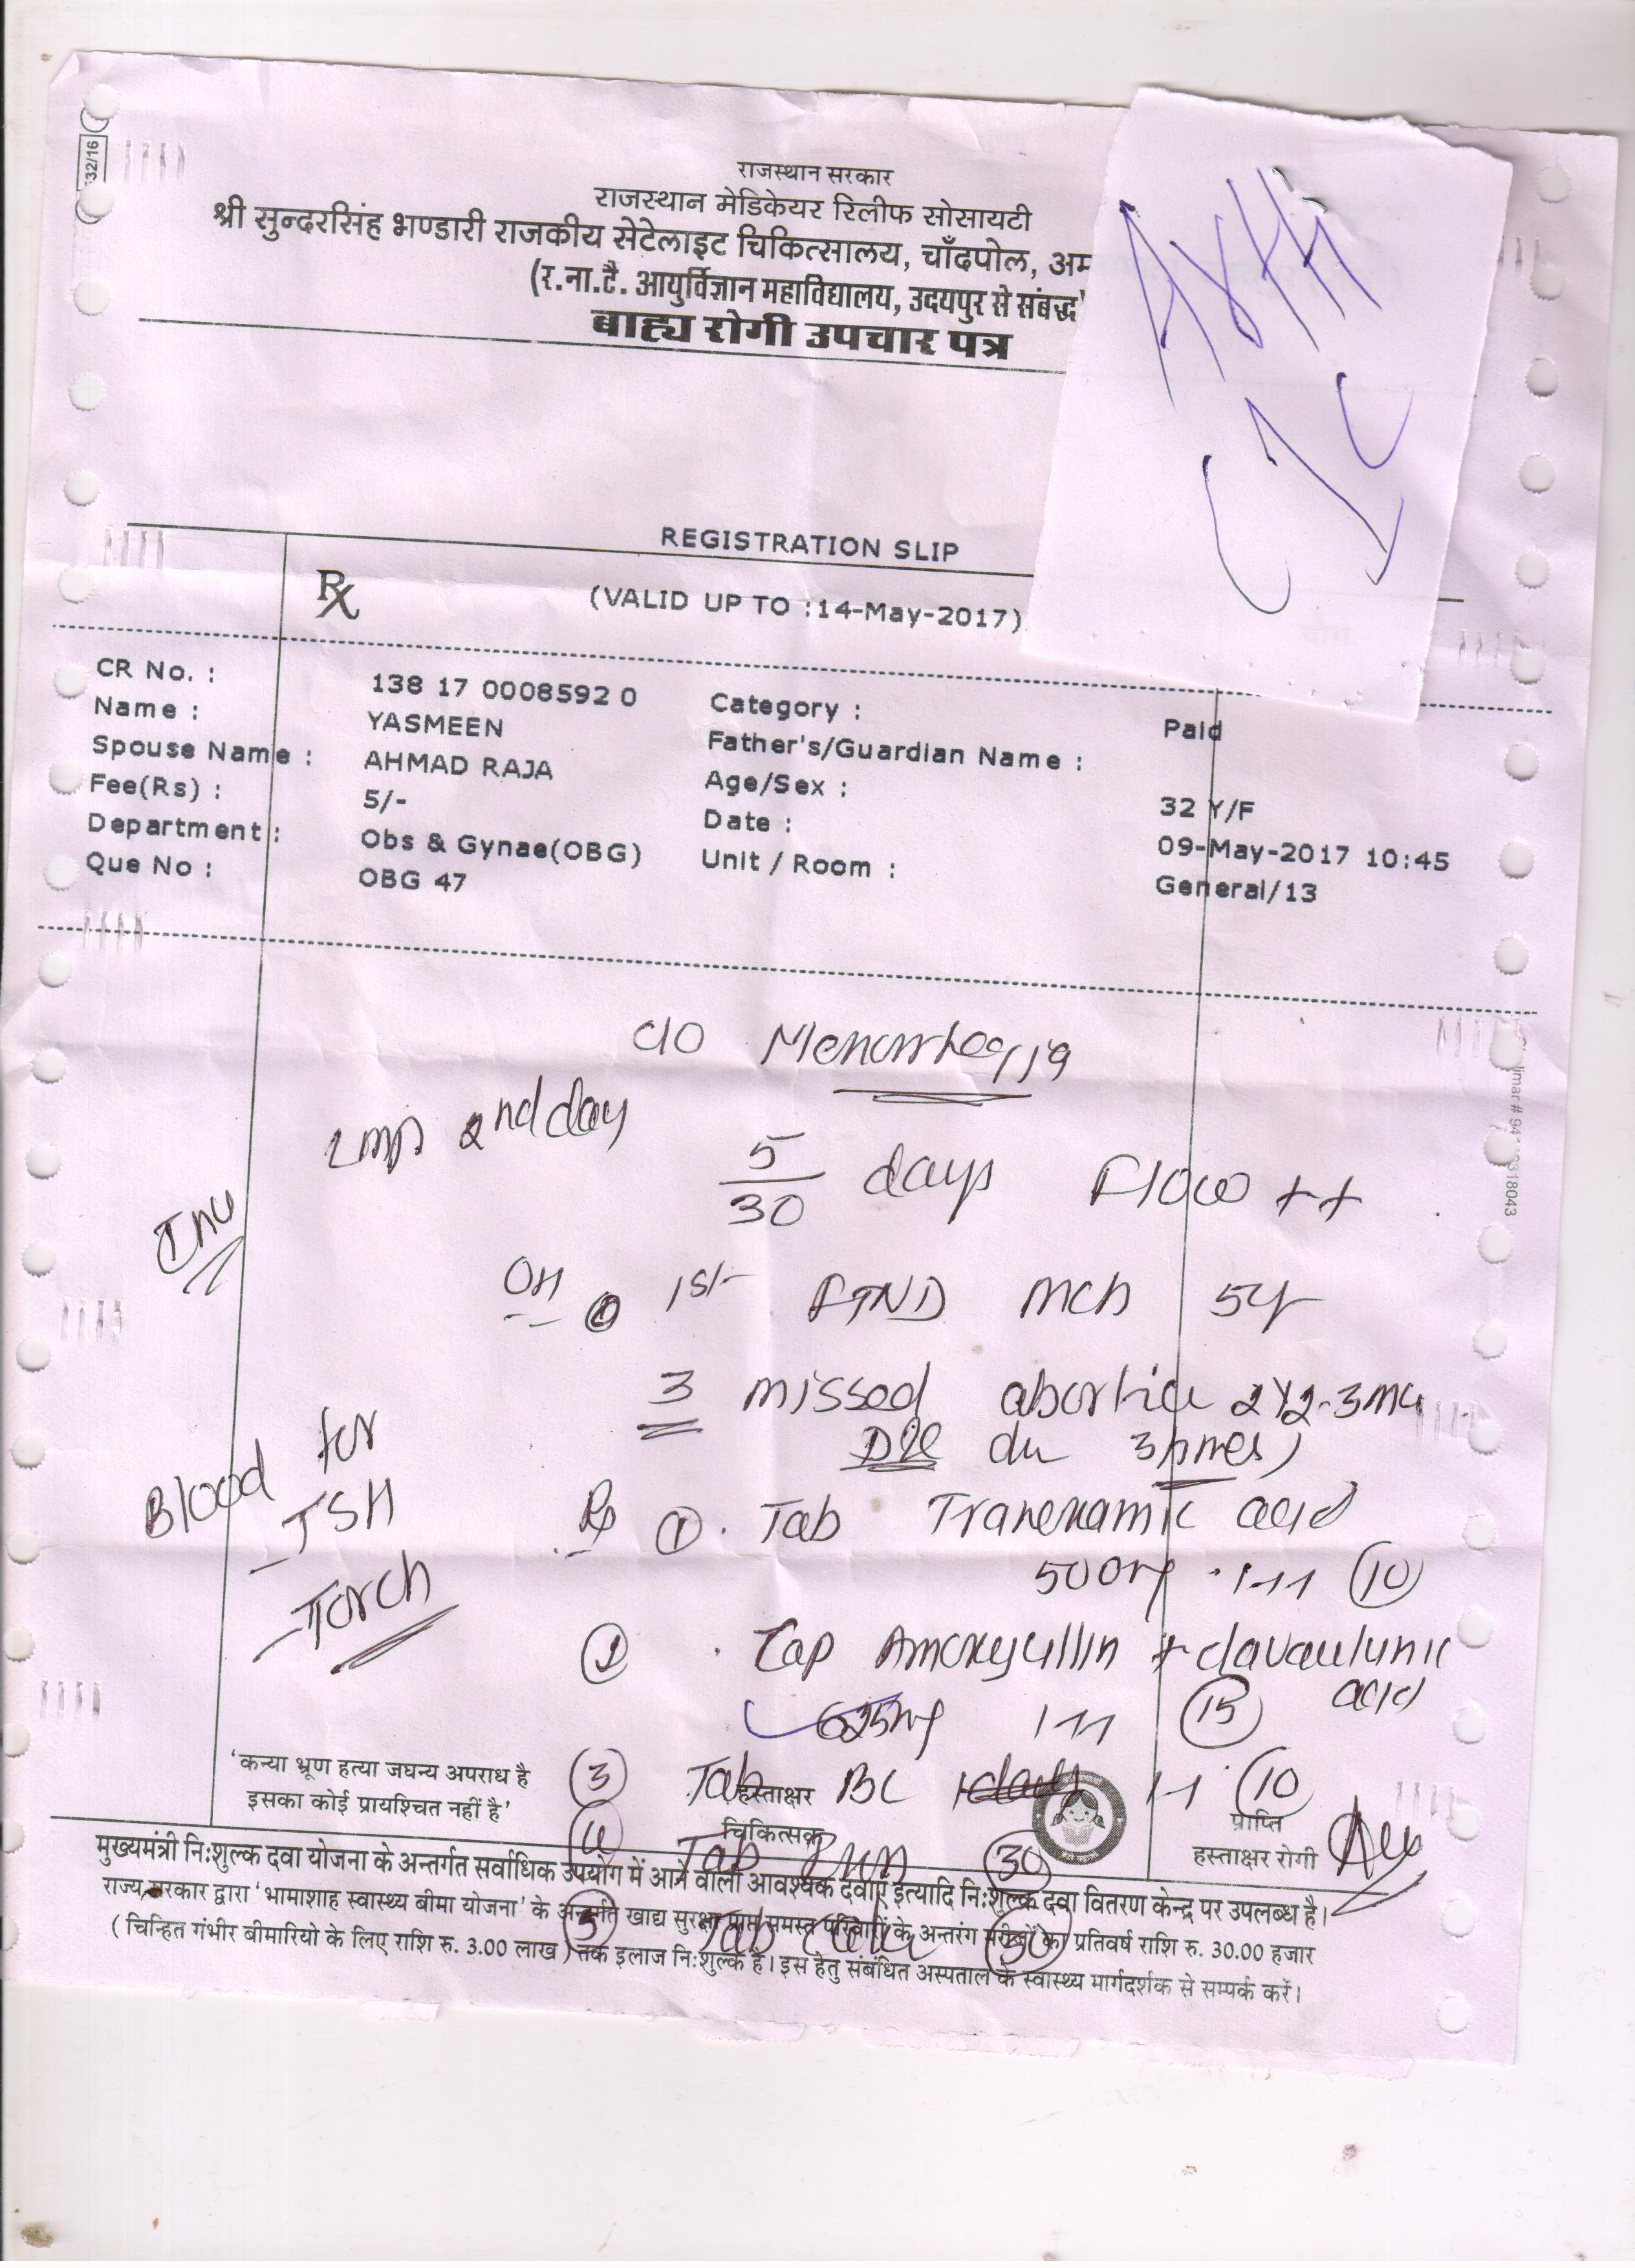 राजस्थान सरकार
राजस्थान मेडिकेयर रिलीफ सोसायटी
श्री सुन्दरसिंह भण्डारी राजकीय सेटेलाइट चिकित्सालय, चाँदपोल, अम
(र.ना.टै. आयुर्विज्ञान महाविद्यालय, उदयपुर से संबद्ध)
बाह्य रोगी उपचार पत्र
REGISTRATION SLIP
(VALID UP TO :14-May-2017)
CR No. : 138 17 0008592 0 Category : Paid
Name : YASMEEN Father's/Guardian Name :
Spouse Name : AHMAD RAJA Age/Sex : 32 Y/F
Fee(Rs) : 5/- Date : 09-May-2017 10:45
Department : Obs & Gynae(OBG) Unit / Room : General/13
Que No : OBG 47
C/O Menorrhagia
LMP 2nd day
5/30 days Flow ++
Inv
OH 1st FTND MCh 5yr
3 missed abortion
3 times)
Blood for
- TSH
- Torch
Rx ① Tab Tranexamic acid
500mg 1-1-1 (10)
Cap Amoxycillin + clavaulunic acid
625mg 1-1-1 (15)
③ Tab BC 1-1 (10)
Tab (30)
⑤ Tab (30)
'कन्या भ्रूण हत्या जघन्य अपराध है
इसका कोई प्रायश्चित नहीं है'
हस्ताक्षर
चिकित्सक
प्राप्ति
हस्ताक्षर रोगी
मुख्यमंत्री निःशुल्क दवा योजना के अन्तर्गत सर्वाधिक उपयोग में आने वाली आवश्यक दवाएं इत्यादि निःशुल्क दवा वितरण केन्द्र पर उपलब्ध है।
राज्य सरकार द्वारा 'भामाशाह स्वास्थ्य बीमा योजना' के अन्तर्गत खाद्य सुरक्षा प्राप्त समस्त परिवारों के अन्तरंग मरीजों का प्रतिवर्ष राशि रु. 30.00 हजार
( चिन्हित गंभीर बीमारियो के लिए राशि रु. 3.00 लाख ) तक इलाज निःशुल्क है। इस हेतु संबंधित अस्पताल के स्वास्थ्य मार्गदर्शक से सम्पर्क करें।